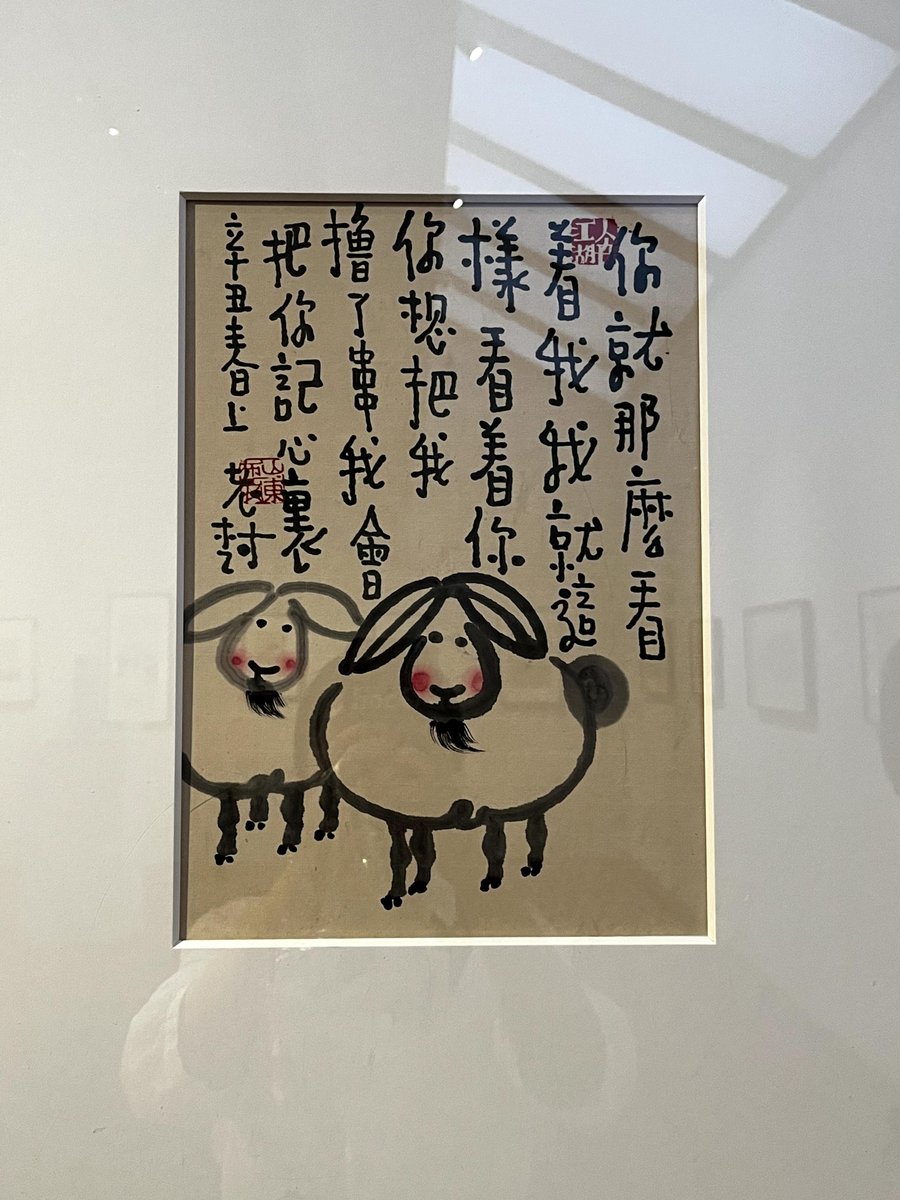 你就那麼看
着我我就這
樣看着你
你想把我
擼了串我會
把你記心裏
辛丑春上 老村
江湖
山東